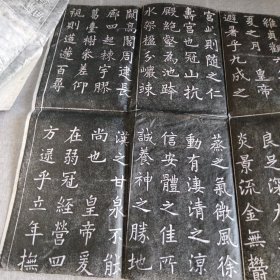 夏之月　皇帝
避暑乎九成之
宮此則隨之仁
壽宮也冠山抗
殿絕壑為池跨
水架楹分巖竦
闕高閣周建長
廊四起棟宇膠
葛臺榭參差仰
視則迢遰百尋
炎景流金無鬱
蒸之氣微風徐
動有淒清之涼
信安體之佳所
誠養神之勝地
漢之甘泉不能
尚也　皇帝爰
在弱冠經營四
方逮乎立年撫